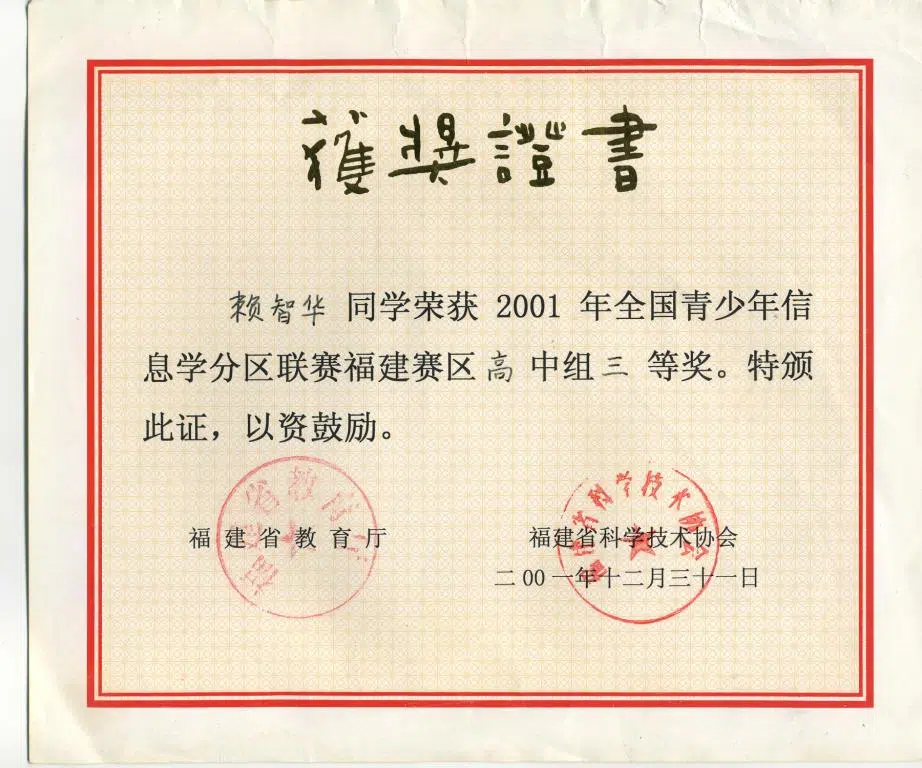 獲獎證書
赖智华 同学荣获 2001 年全国青少年信
息学分区联赛福建赛区 高 中组 三 等奖。特颁
此证，以资鼓励。
福建省教育厅
福建省教育厅
福建省科学技术协会
福建省科学技术协会
二00一年十二月三十一日